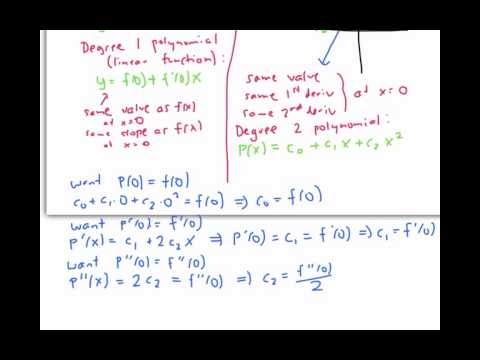 Degree 1 polynomial
(linear function):
y = f(0) + f'(0)x
same value as f(x)
at x=0
same slope as f(x)
at x=0
same value
same 1st deriv
same 2nd deriv
at x=0
Degree 2 polynomial:
P(x) = c₀ + c₁x + c₂x²
want P(0) = f(0)
c₀ + c₁·0 + c₂·0² = f(0) ⇒ c₀ = f(0)
want P'(0) = f'(0)
P'(x) = c₁ + 2c₂x ⇒ P'(0) = c₁ = f'(0) ⇒ c₁ = f'(0)
want P''(0) = f''(0)
P''(x) = 2c₂ = f''(0) ⇒ c₂ = f''(0)/2